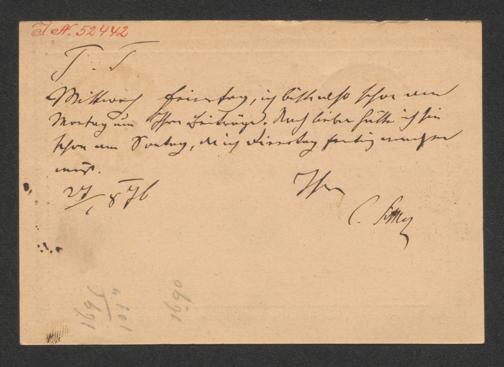 I. N. 52442
T. T
Mittwoch Feiertag, ich bitte also schon am
Montag um Ihre Beiträge. Noch lieber hätte ich sie
schon am Sontag, da ich Dienstag fertig machen
muß.
27/ 876 Ihr
C.
1690